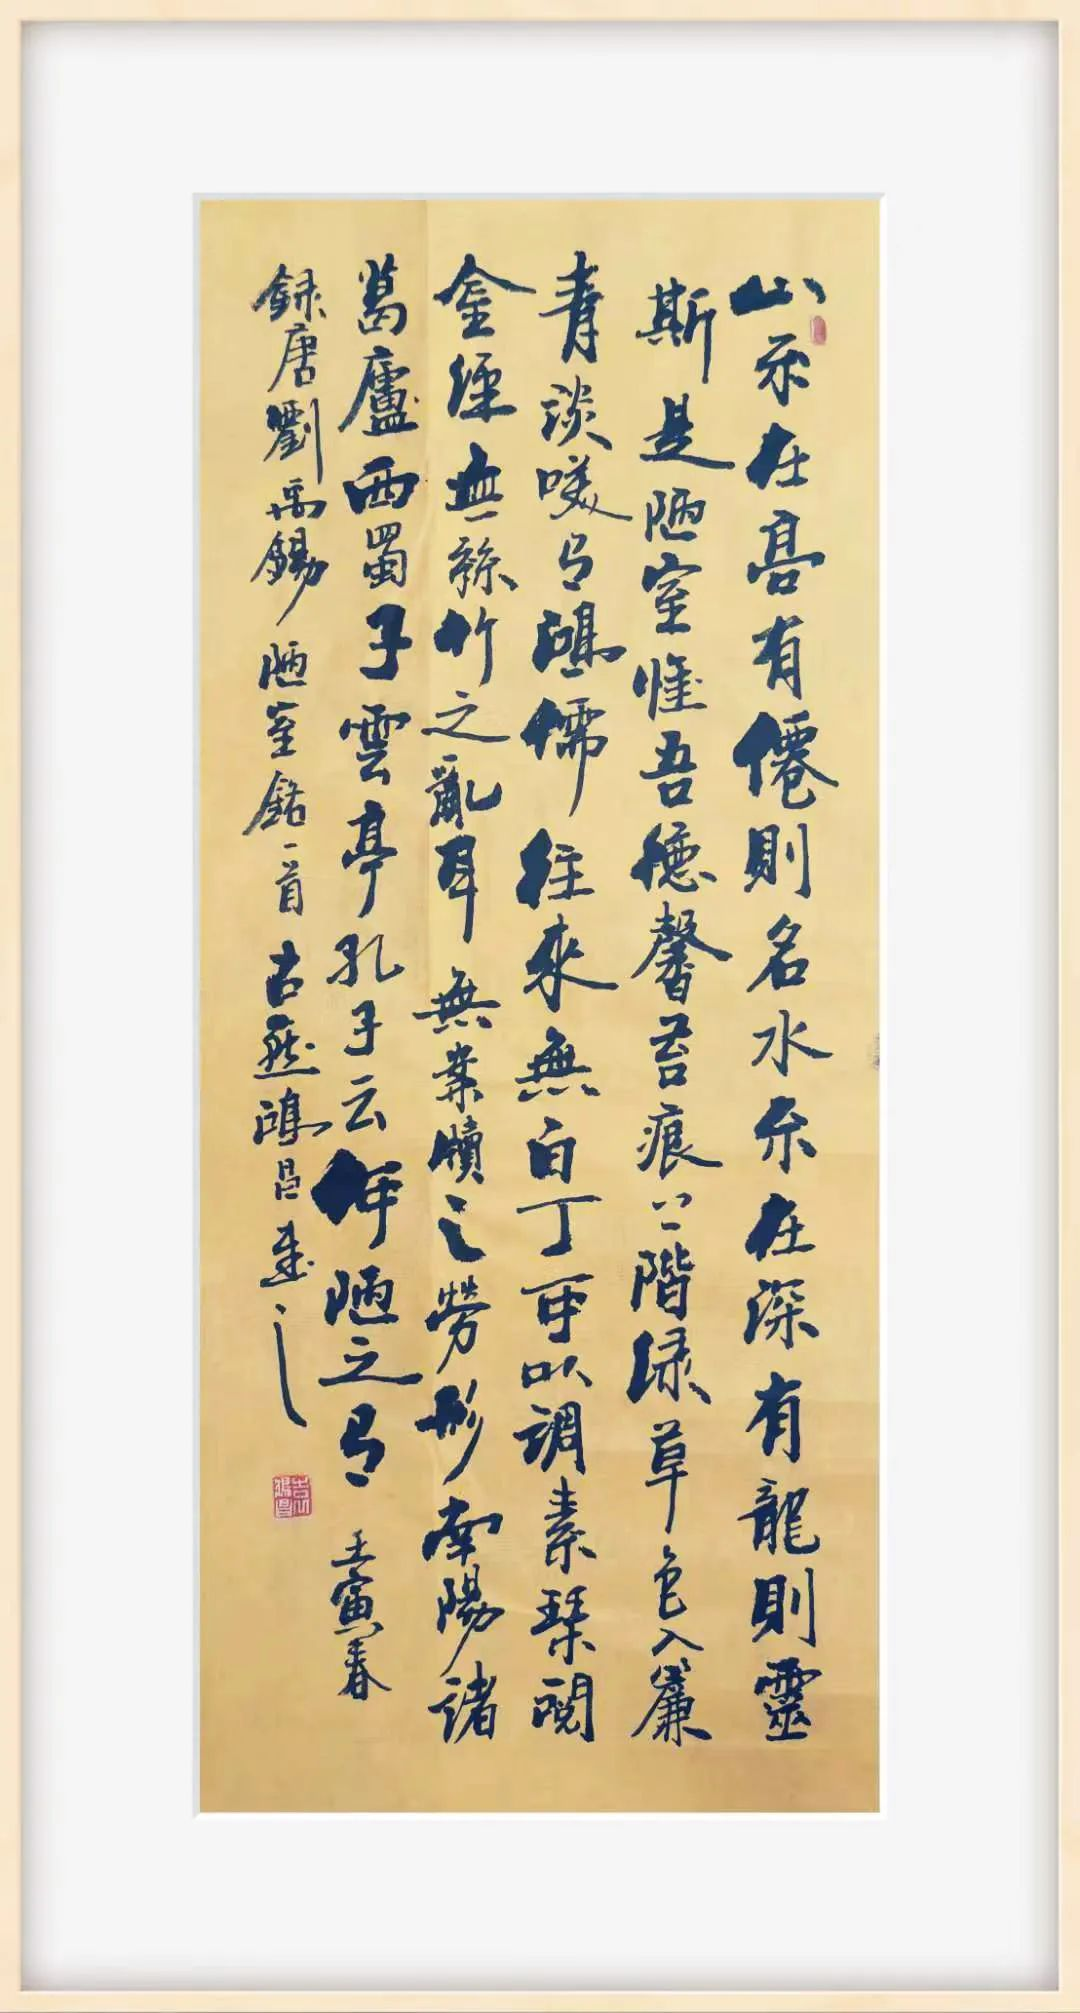 山不在高有僊則名水不在深有龍則靈
斯是陋室惟吾德馨苔痕上階緑草色入簾
青談咲有鴻儒往來無白丁可以調素琴閱
金經無絲竹之亂耳無案牘之勞形南陽諸
葛廬西蜀子雲亭孔子云何陋之有 壬寅春
録唐劉禹錫陋室銘一首 古燕鴻昌書之